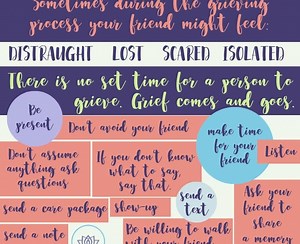 Sometimes during the grieving
process your friend might feel:
DISTRAUGHT LOST SCARED ISOLATED
There is no set time for a person to
grieve. Grief comes and goes.
Be
present
Don't avoid your friend
make time
for your
friend
Listen
Don't assume
anything ask
questions
If you don't know
what to say,
say that.
send a care package
Show-up
send a
text
Ask your
friend to
share
a memory
send a note
Be willing to walk
with your friend